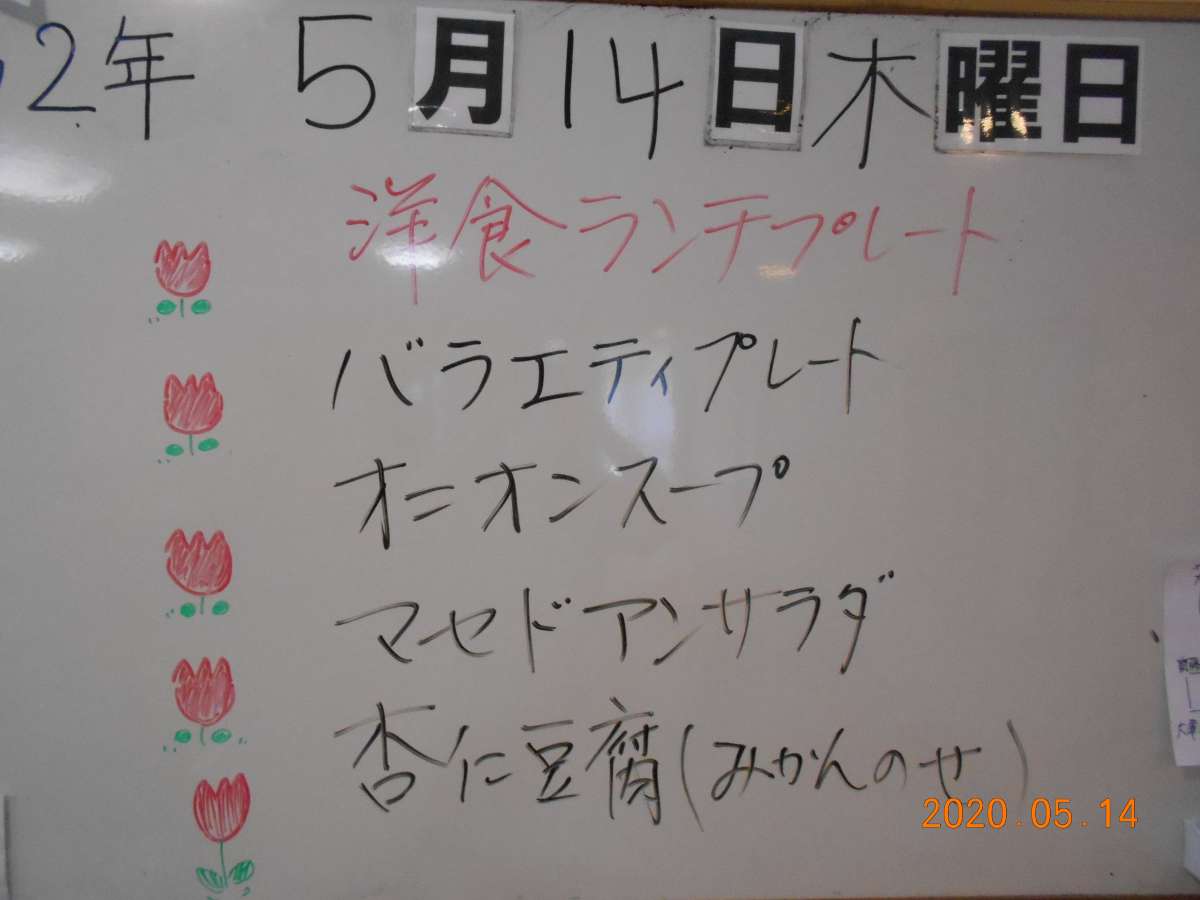 2年 5月14日木曜日
洋食ランチプレート
バラエティプレート
オニオンスープ
マセドアンサラダ
杏仁豆腐(みかんのせ)
2020.05.14